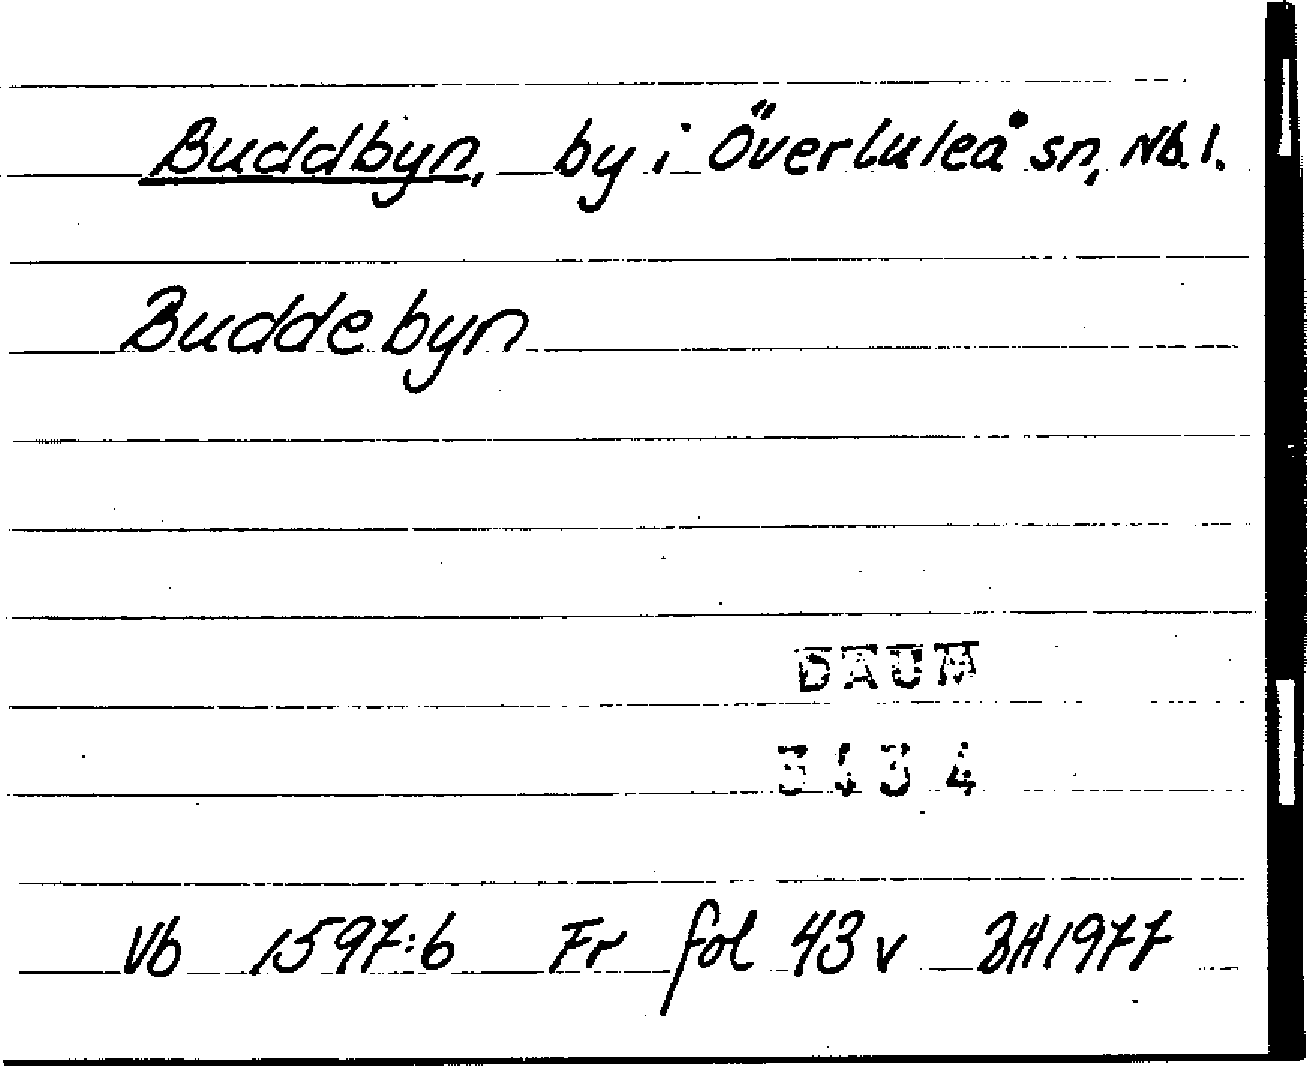 Buddbyn, by i Överluleå sn, Nb. l.
Buddebyn
DAUM
3434
Vb 1597:6 Fr fol 43 v BH1977